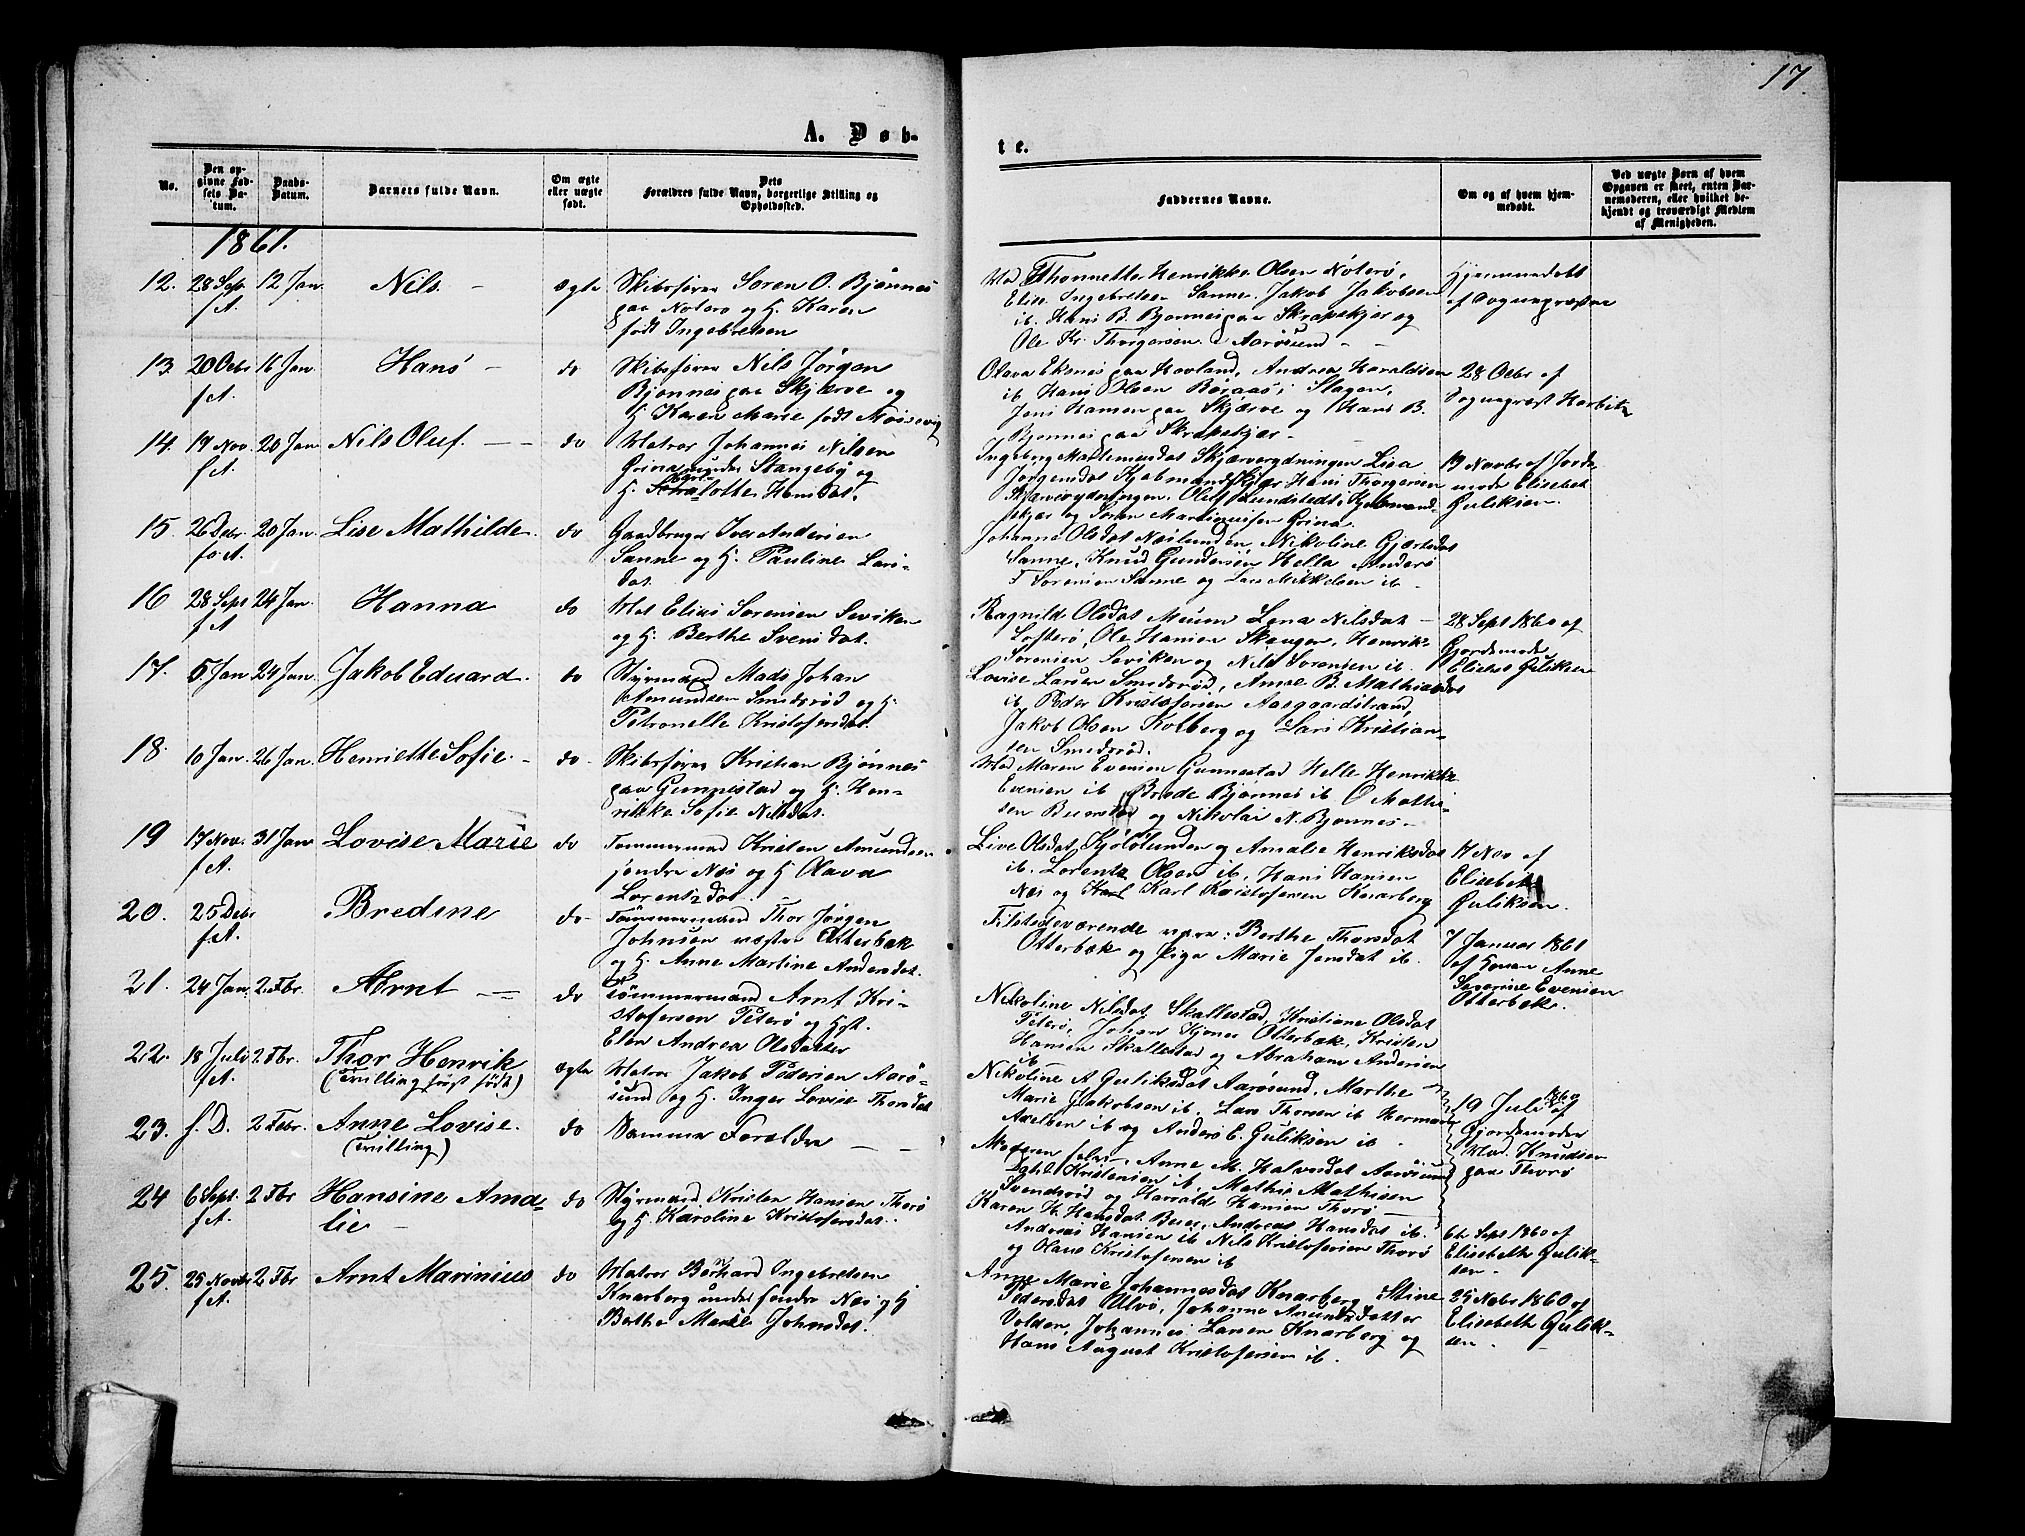 17.
A. Døb-
te.
No.
Den op-
givne Fød-
sels Da-
tum.
Daabs-
Datum.
Barnets fulde Navn.
Om ægte
eller uægte
født.
Dets
Forældres fulde Navn, borgerlige Stilling og
Opholdssted.
Faddernes Navne.
Om og af hvem hjem-
medøbt.
Ved uægte Børn af hvem
Opgaven er skeet, enten Bar-
nemoderen, eller hvilket be-
kjendt og troværdigt Medlem
af Menigheden.
1861.
12. 28 Sep. 12 Jan Nils - ægte Skibsfører Søren O. Bjønnes
f A.
paa Nøterø og H. Karen
født Ingebretsen
Mad Thonnette Henrikke Olsen Nøterø,
Elise Ingebretsen Sanne, Jakob Jakobsen
ib. Hans B. Bjønnes paa Skrapekjer og
Ole Kr. Thorgersen Aarøsund - -
Hjemmedøbt
af Sognepresten
13. 20 Octbr 16 Jan Hans - do Skibsfører Nils Jørgen
f A.
Bjønnes paa Skjærve og
H. Karen Marie født
Olava paa Havland, Andrea Haraldsen
ib Hans Olsen Børaas i Slagen,
Jens Hansen paa Skjærve og Hans B.
Bjønnes paa Skrapekjær -
28 Octbr af
Sogneprest Harbitz
14. 19 Nov. 20 Jan Nils Oluf. - - do Matros Johannes Nilsen
f A.
Grina under Stangeby og
H. lotte Hansdat.
Ingeborg Skjærverydningen Lisa
Jørgensdat Kjøbmandskjær Hans Thorgersen
Skjærverydningen, Ole Lundstedt, Kjøbmand-
skjær og Søren Martinussen Grina.
19 Novbr af Jorde-
mode Elisebet
Guliksen.
15. 26 Debr. 20 Jan. Lise Mathilde. do Gaardbruger Iver Andersen
fo A.
Sanne og H. Pauline Lars-
dat.
Johanne Olsdat Næslunden, Nikoline Gjertsdat
Sanne, Knud Gundersen Hella Anders
T Sørensen Sanne og Lars Mikkelsen ib -
16 28 Sept 24 Jan. Hanna do Mat Elias Sørensen Seviken
f A
og H. Berthe Svensdat.
Ragnild Olsdat Meum Lena Nilsdat -
Lofterø, Ole Hansen Skaugen, Henrik
Sørensen Seviken og Nils Sørensen ib.
28 Sept 1860 af
Gjordemode
Elisebet Guliksen
17. 5 Jan 24 Jan. Jakob Eduard. do Styrmand Mads Johan
Amundsen Smidsrød og H.
Petronelle Kristofersdat.
Lovise Larsen Smedsrød, Anne B. Mathiasdat
ib Peder Kristofersen Aasgaardstrand,
Jakob Olsen Kolberg og Lars Kristian-
sen Smedsrød.
18. 10 Jan. 26 Jan. Henriette Sofie. - do - Skibsfører Kristian Bjønnes
paa Gunnestad og H. Hen-
rikke Sofie Nilsdat.
Mad Maren Evensen Gunnestad Helle Henrikke
Evensen ib Brede Bjønnes ib O Mathi-
sen og Nikolai N. Bjønnes -
19 17 Nov. 31 Jan Lovise Marie do Tømmermand Kristen Amundsen
f A.
søndre Næs og H Olava
Lorentzdat.
Live Olsdat og Amalie Henriksdat
ib. Lorentz Olsen ib, Hans Hansen
Næs og Karl Karl Kristofersen Knarberg
17 Nov af
Elisebet
Guliksen.
20. 25 Debr Bredine do - Tømmermand Thor Jørgen
f. A.
Johnsen vestre Otterbæk
og H. Anne Martine Andersdat.
Tilstedeværende vare: Berthe Thorsdat
Otterbæk og Pige Marie Jensdat ib.
7 Januar 1861
af Konen Anne
Severine Evensen
Otterbæk.
21. 24 Jan. 2 Fbr. Arnt - - do Tømmermand Arnt Kri-
stofersen Peterø og Hst.
Elen Andrea Olsdatter
Nikoline Nilsdat Skallestad, Kristiane Olsdat
Peterø, Johan Otterbæk, Kristen
Hansen Skallestad og Abraham Andersen
ib
22. 18 Juli 2 Fbr. Thor Henrik ægte Matros Jakob Pedersen Aarø-
f A.
(Tvilling først født)
sund og H. Inger Lovise Thorsdat
Nikoline A Guliksdat Aarøsund, Marthe
Marie Jakobsen ib. Lars Thorsen ib Herman
Axelsen ib og Anders E. Guliksen ib.
19 Juli 1860 af
Gjordemoder
Mad. Knudsen
paa Thorø
23. f. D. 2 Febr. Anne Lovise. do Samme Forældre - -
(Tvilling)
Moderen selv, Anne M. Halvorsdat Aarøsund
Kristensen ib, Mathis Mathisen
Svendsrød og Harald Hansen Thorø -
24 6 Sept. 2 Fbr Hansine Ama- do Styrmand Kristen Hansen Thorø
f A.
lie -
og H. Karoline Kristofersdat.
Karen H. Hansdat Andreas Hansdat ib.
Andreas Hansen ib Nils Kristofersen Thorø
og Olaus Kristofersen ib
6te Sept 1860 af
Elisebeth Gulik-
sen -
25. 25 Novbr 2 Fbr Arnt Marinius do Matros Bernhard Ingebretsen
f A.
Knarberg under søndre Næs og H
Berthe Marie Johnsdat.
Anne Marie Johannesdat Knarberg, Stine
Pedersdat Ulvø, Johanne Amundsdatter
Volden, Johannes Larsen Knarberg og
Hans August Kristofersen ib.
25 Nobr 1860 af
Elisebeth Gulik-
sen -